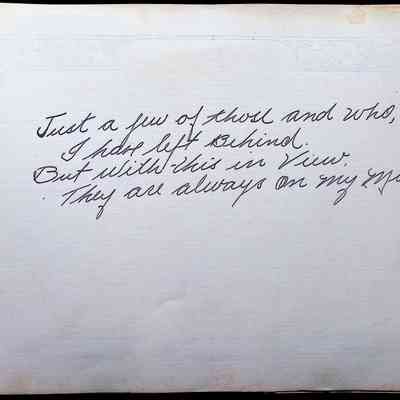 Just a few of those and who,
I have left Behind.
But with this in View.
They are always on my